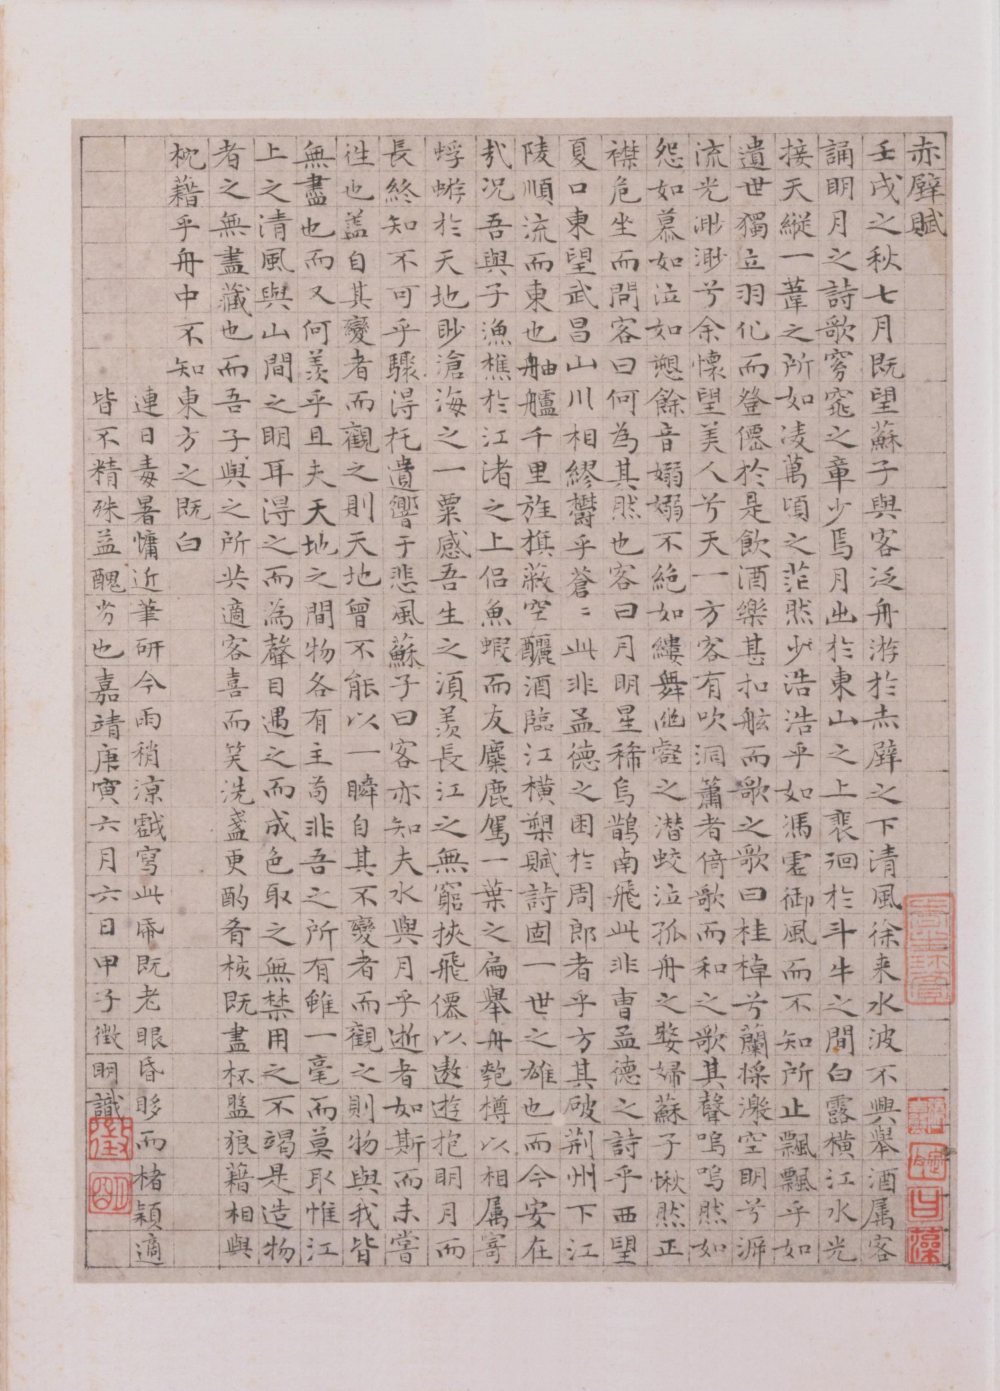 赤壁賦
壬戌之秋七月既望蘇子與客泛舟游於赤壁之下清風徐来水波不興舉酒属客
誦明月之詩歌窈窕之章少焉月出於東山之上裴徊於斗牛之間白露横江水光
接天縱一葦之所如凌萬頃之茫然少浩浩乎如馮虚御風而不知所止飄飄乎如
遺世獨立羽化而登僊於是飲酒樂甚扣舷而歌之歌曰桂棹兮蘭槳空明兮泝
流光渺渺兮余懷望美人兮天一方客有吹洞簫者倚歌而和之歌其聲嗚嗚然如
怨如慕如泣如愬餘音嫋嫋不絶如縷舞幽壑之潜蛟泣孤舟之嫠婦蘇子愀然正
襟危坐而問客曰何為其然也客曰月明星稀烏鵲南飛此非曹孟德之詩乎西望
夏口東望武昌山川相繆欝乎蒼〻此非孟德之困於周郎者乎方其破荆州下江
陵順流而東也舳艫千里旌旗蔽空釃酒臨江横槊賦詩固一世之雄也而今安在
㢤况吾與子漁樵於江渚之上侣魚蝦而友麋鹿駕一葉之扁舉舟匏樽以相属寄
蜉蝣於天地眇滄海之一粟感吾生之須羡長江之無窮挾飛僊以遨遊抱明月而
長終知不可乎驟得托遺響于悲風蘇子曰客亦知夫水與月乎逝者如斯而未嘗
往也盖自其變者而觀之則天地曾不能以一瞬自其不變者而觀之則物與我皆
無盡也而又何羡乎且夫天地之間物各有主苟非吾之所有雖一毫而莫取惟江
上之清風與山間之明耳得之而為聲目遇之而成色取之無禁用之不竭是造物
者之無盡藏也而吾子與之所共適客喜而笑洗盞更酌肴核既盡杯盤狼藉相與
枕藉乎舟中不知東方之既白
連日毒暑慵近筆研今雨稍凉戲寫此㡳既老眼昏眵而楮穎適
皆不精殊益醜劣也嘉靖庚寅六月六日甲子徵明識
徵明